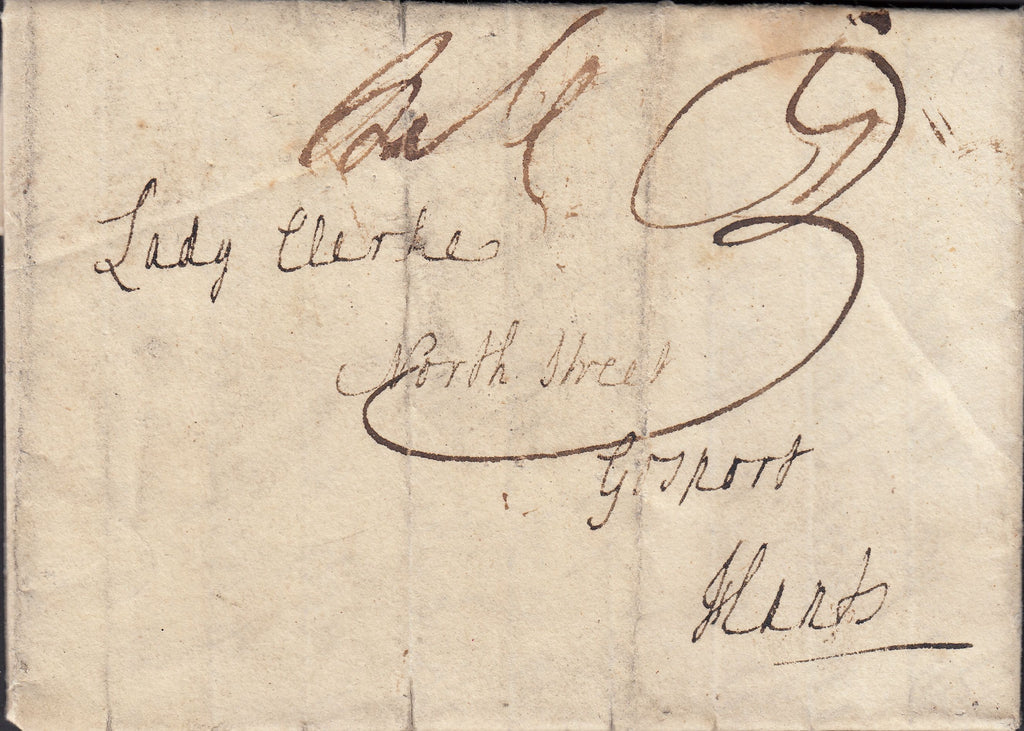 Lady Clerke
North Street
Gosport
Hants